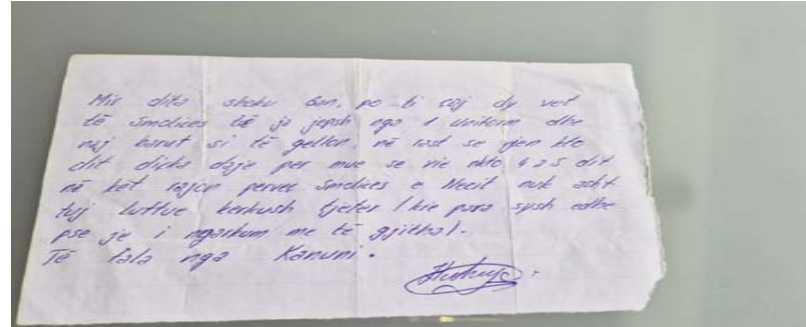 Mir dita shoku Gan, po ti coj dy vet
të Smolices të ja jepsh nga 1 uniform dhe
naj barut si të gellon, në rast se gjen kto
dit dicka daje per mue se vie nkto 4 a 5 dit
në ket rajon pervec Smolices e Necit nuk asht
tuj luftue kerkush tjeter (kie para sysh edhe
pse je i ngarkum me të gjitha).
Të fala nga Kanuni.